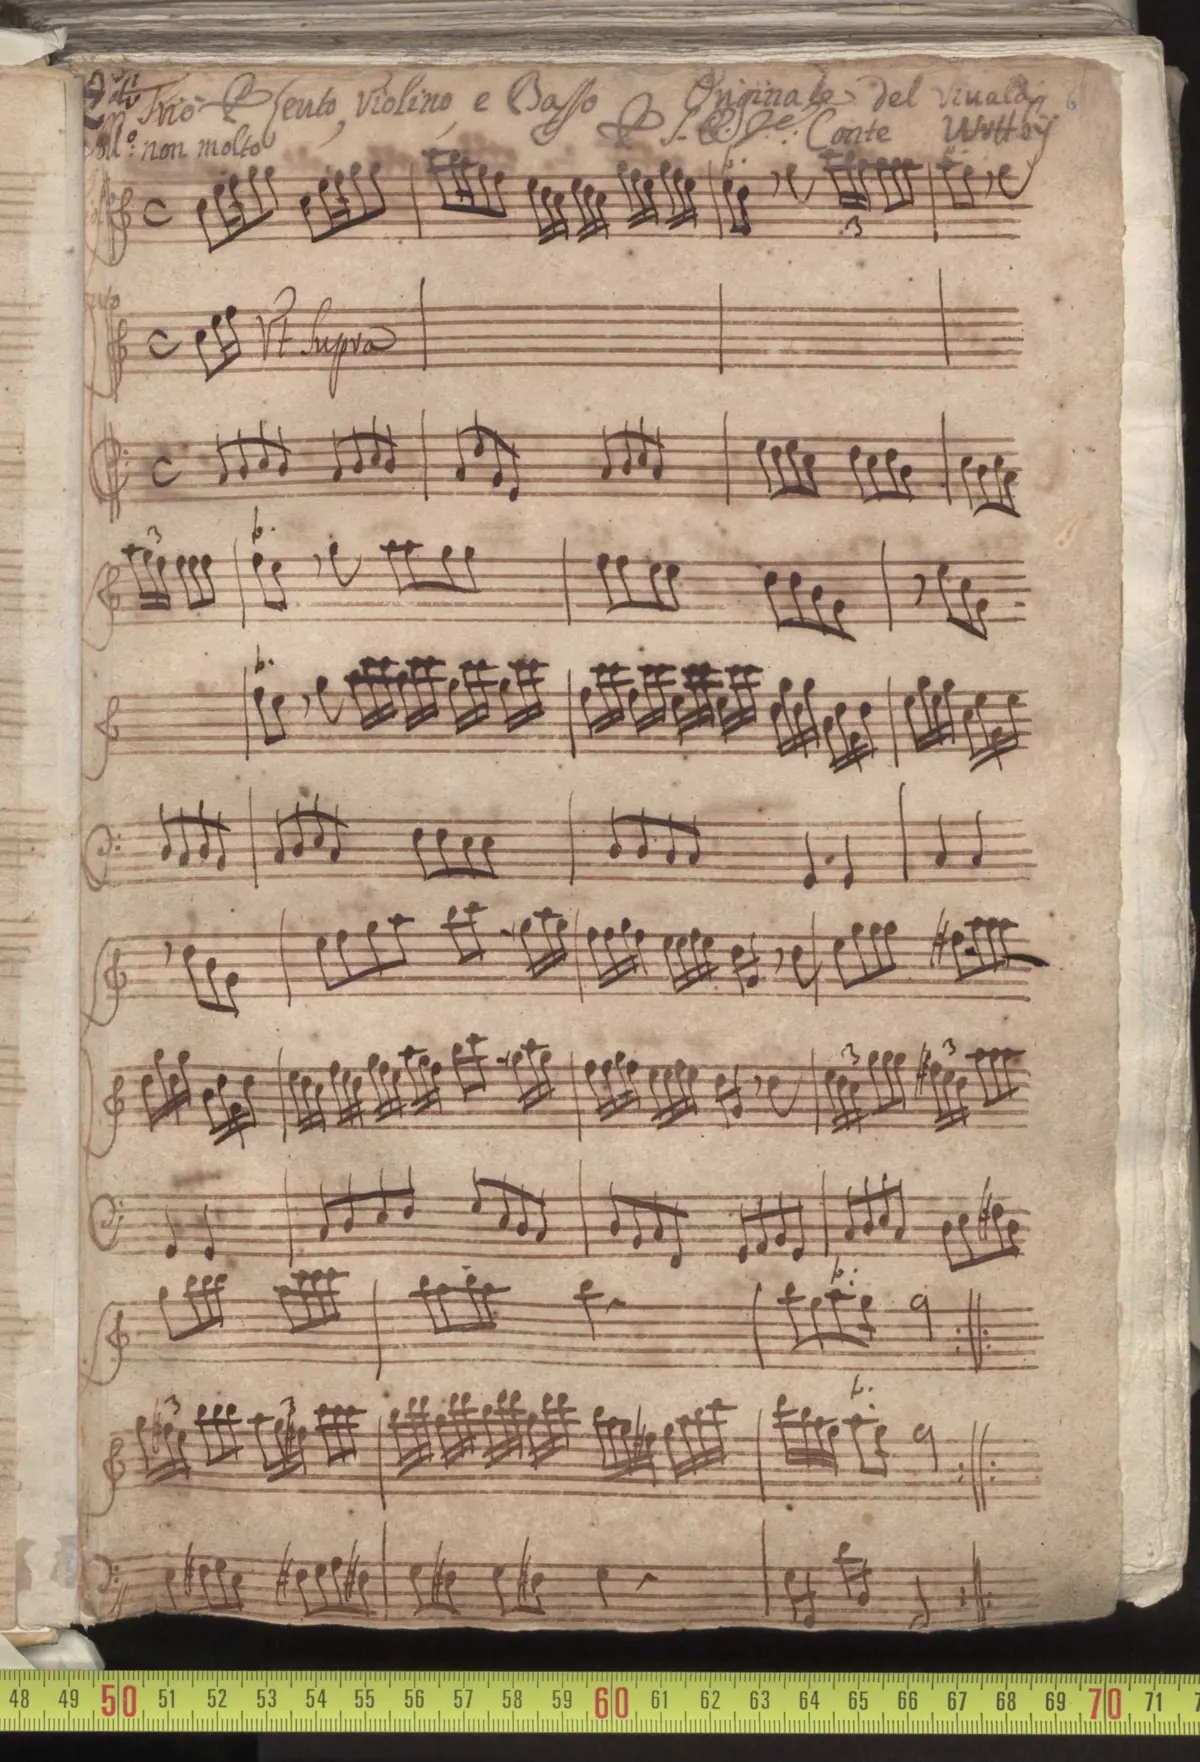 Trio P Leuto, Violino, e Basso Originale del Vivaldi
All:º non molto P S. E. Sr. Conte Wrttbÿ
3
Vt Supra
3
3 3
3 3
48 49 50 51 52 53 54 55 56 57 58 59 60 61 62 63 64 65 66 67 68 69 70 71